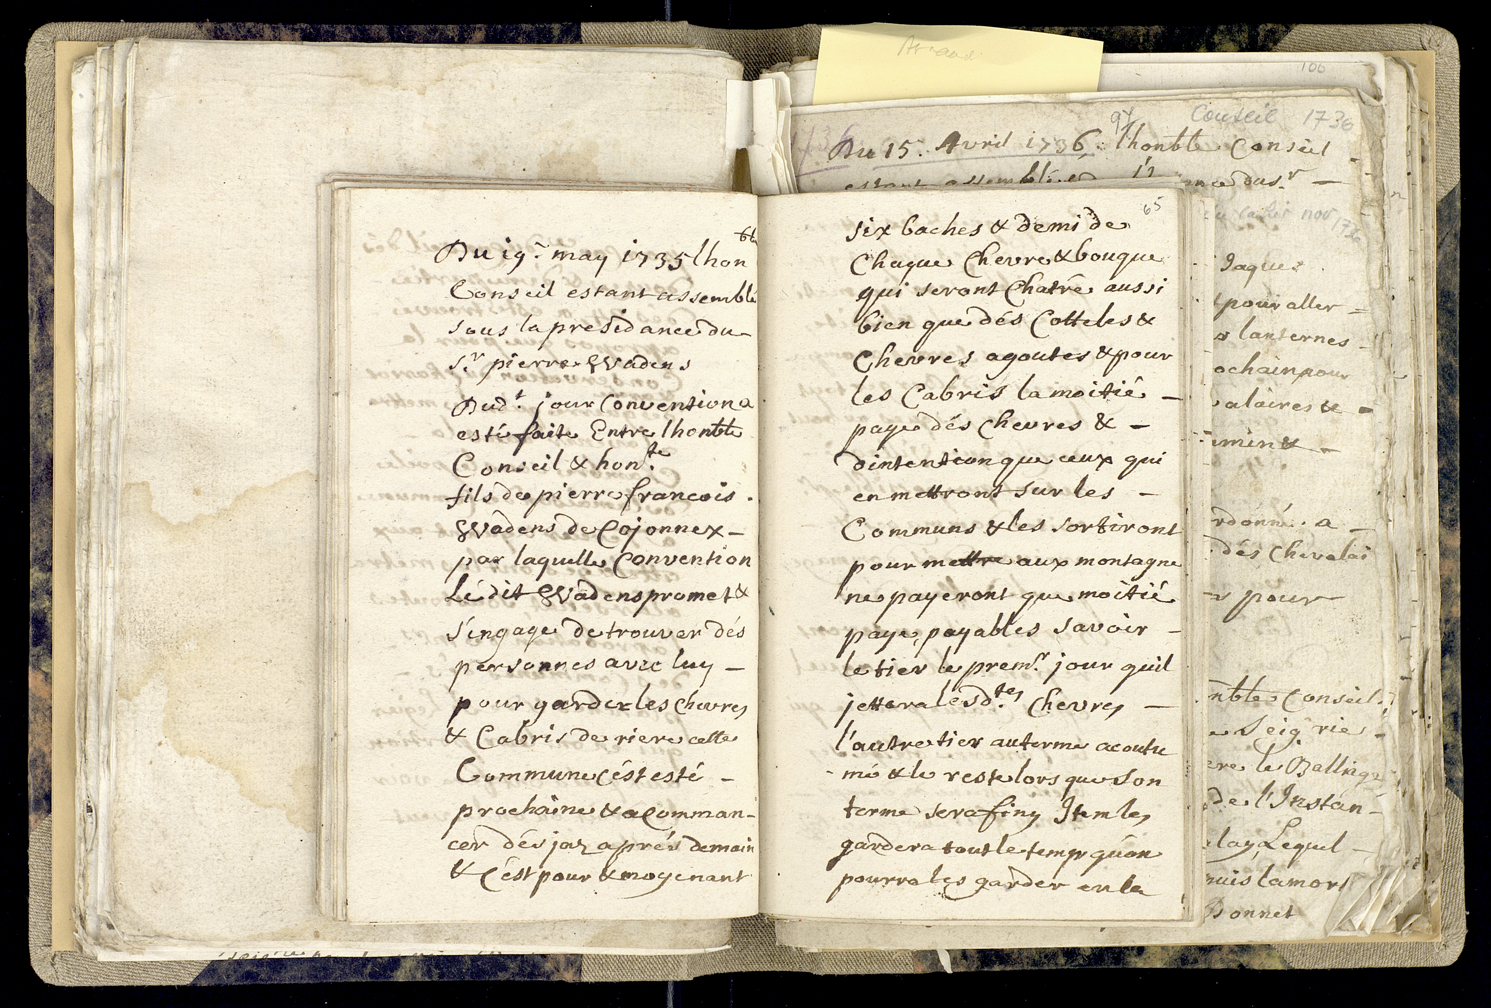 66
Du 19.e may 1735 lhon
Conseil estant assemblé
sous la presidance du
S.r pierre Wadens
Dud.t jour Convention a
esté faite Entre lhonble
Conseil & hon.te
fils de pierre francois
Wadens de Cojonnex
par laquelle Convention
Le dit Wadens promet &
s'engage de trouver dés
personnes avec luy
pour garder les Chevres
& Cabris de riere cette
Commune cést esté
prochaine & a Comman-
cer dés jaz aprés demain
& C'est pour & moyenant
65
six baches & demi de
Chaque Chevre & bouque
qui seront Chatré aussi
bien que dés Cotteles &
Chevres agoutes & pour
les Cabris la moitié
paye dés chevres &
dintention que ceux qui
en mettront sur les
Communs & les sortiront
pour mettre aux montagne
ne payeront que moitié
paye, payables savoir
le tier le prem.r jour quil
jettera lesd.tes Chevres
l'autre tier au terme acoutu
mé & le reste lors que son
terme sera finy Item les
gardera tout le temps quón
pourra les garder en la
106
97
Conseil 1736
Du 15. Avril 1736. lhonble Conseil
estant assemblé
nov 1736
Jaques
pour aller
lanternes
ochain pour
rdonné. a
dés Chevalai
pour
nble Conseil
Seig.rie
le Ballirge
de l'Instan-
Lequel
puis la mort
Donnet